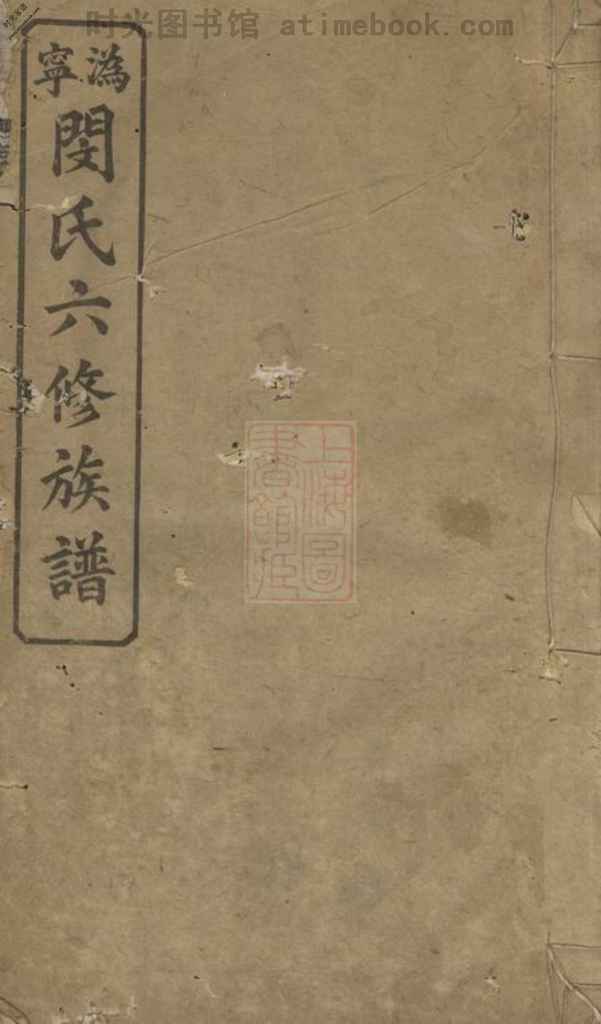 时光图书馆 atimebook.com
溈寧
閔氏六修族譜
上海圖
書館臧